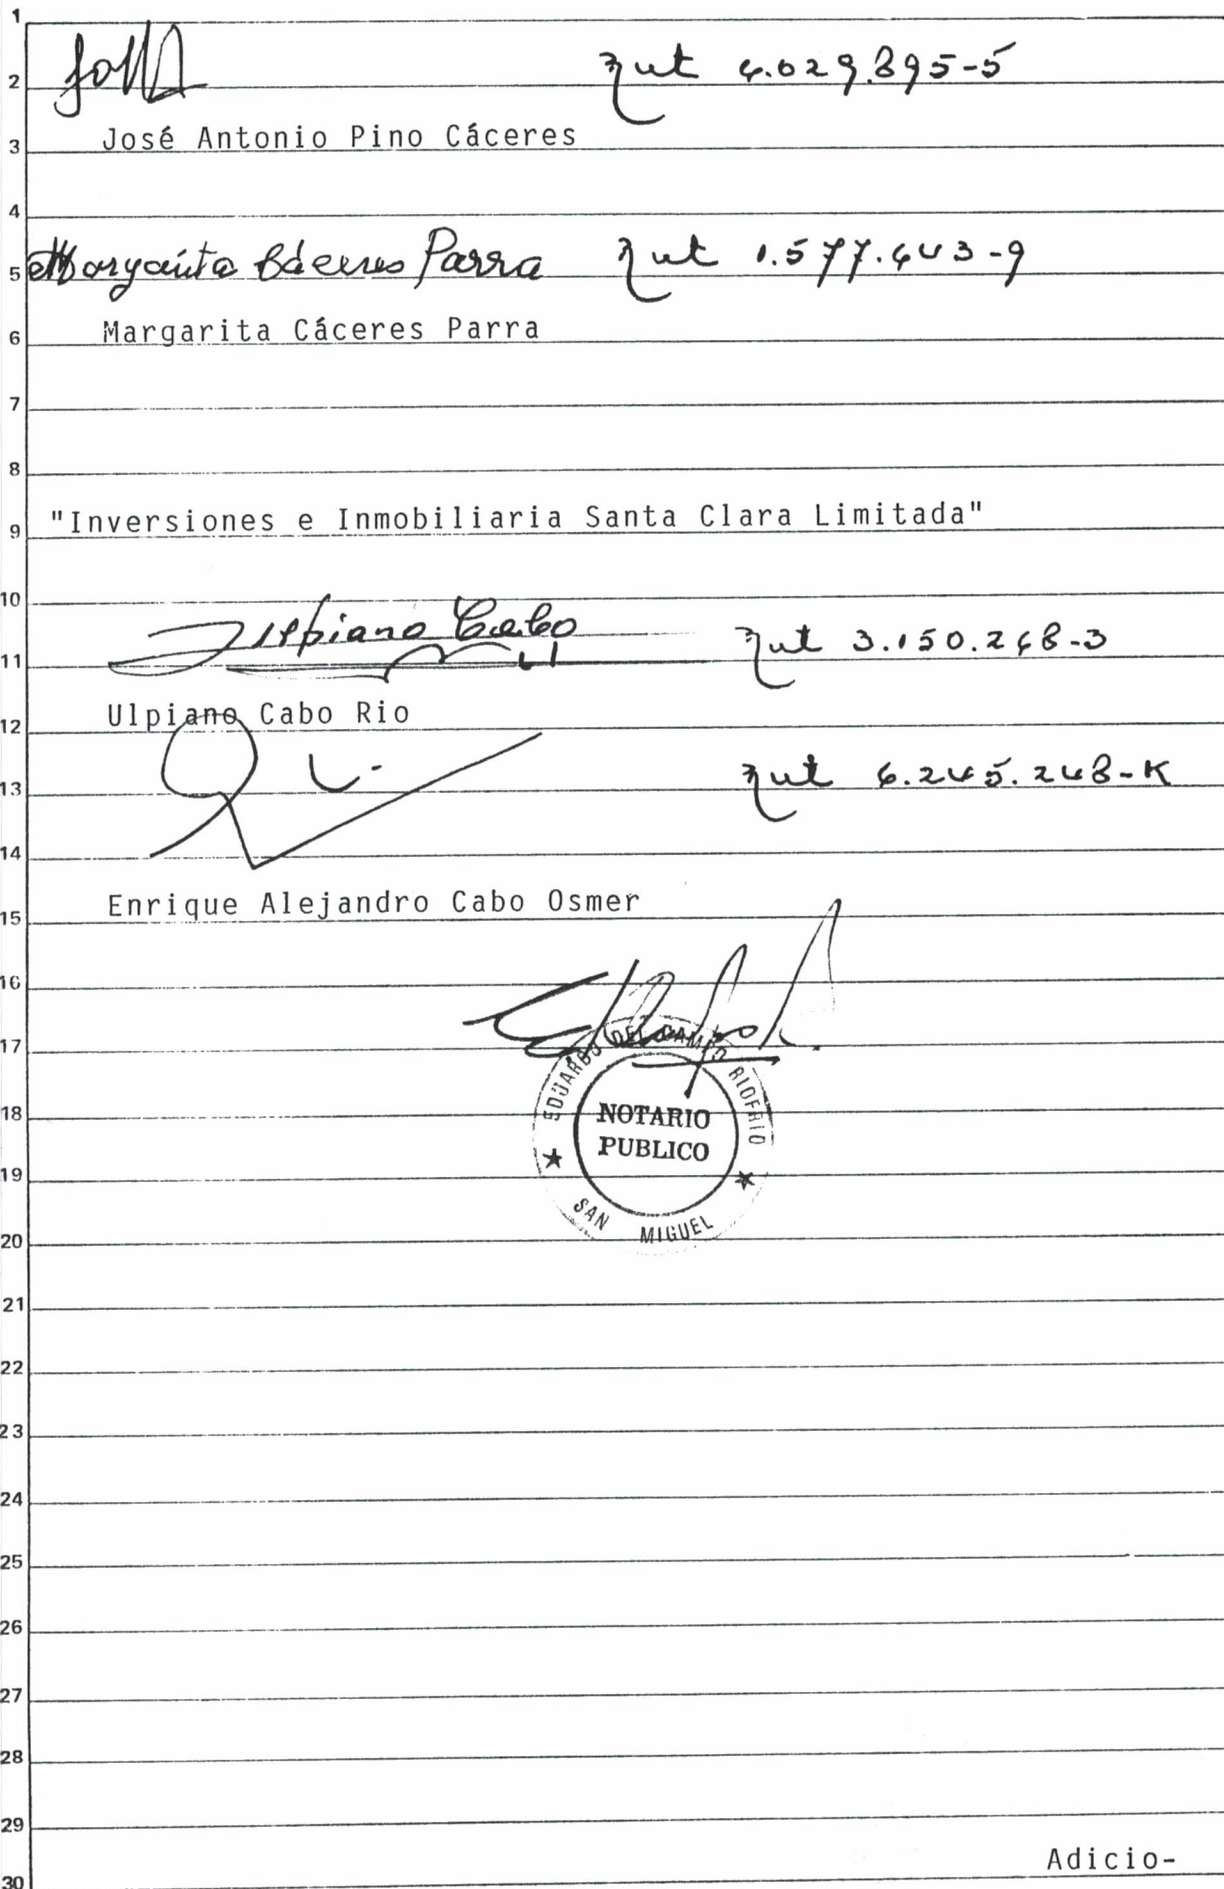 1
2 rut 6.029.895-5
3 José Antonio Pino Cáceres
4
5 Margarita Cáceres Parra rut 1.577.643-9
6 Margarita Cáceres Parra
7
8
9 "Inversiones e Inmobiliaria Santa Clara Limitada"
10
11 Ulpiano Cabo rut 3.150.268-3
12 Ulpiano Cabo Rio
13 rut 6.245.248-K
14
15 Enrique Alejandro Cabo Osmer
16
17 EDUARDO DEL CAMPO RIOFRIO
18 NOTARIO
PUBLICO
19
SAN MIGUEL
20
21
22
23
24
25
26
27
28
29
30 Adicio-